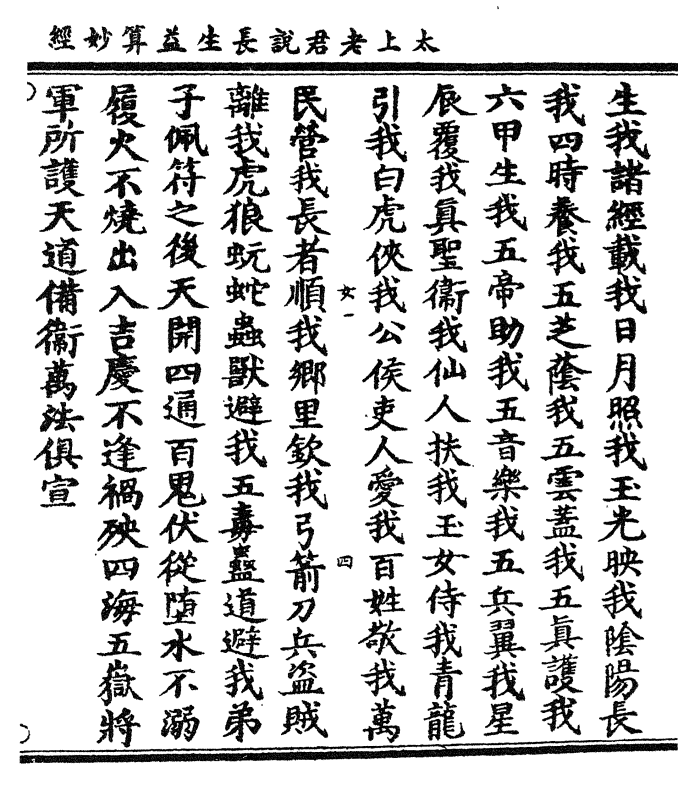 太上老君說長生益算妙經
生我諸經載我日月照我玉光映我陰陽長
我四時養我五芝蔭我五雲蓋我五眞護我
六甲生我五帝助我五音樂我五兵翼我星
辰覆我眞聖衞我仙人扶我玉女侍我青龍
引我白虎俠我公侯吏人愛我百姓敬我萬
女一
四
民營我長者順我鄉里欽我弓箭刀兵盜賊
離我虎狼蚖蛇蟲獸避我五毒蠱道避我弟
子佩符之後天開四通百鬼伏從墮水不溺
履火不燒出入吉慶不逢禍殃四海五嶽將
軍所護天道備衞萬法俱宣